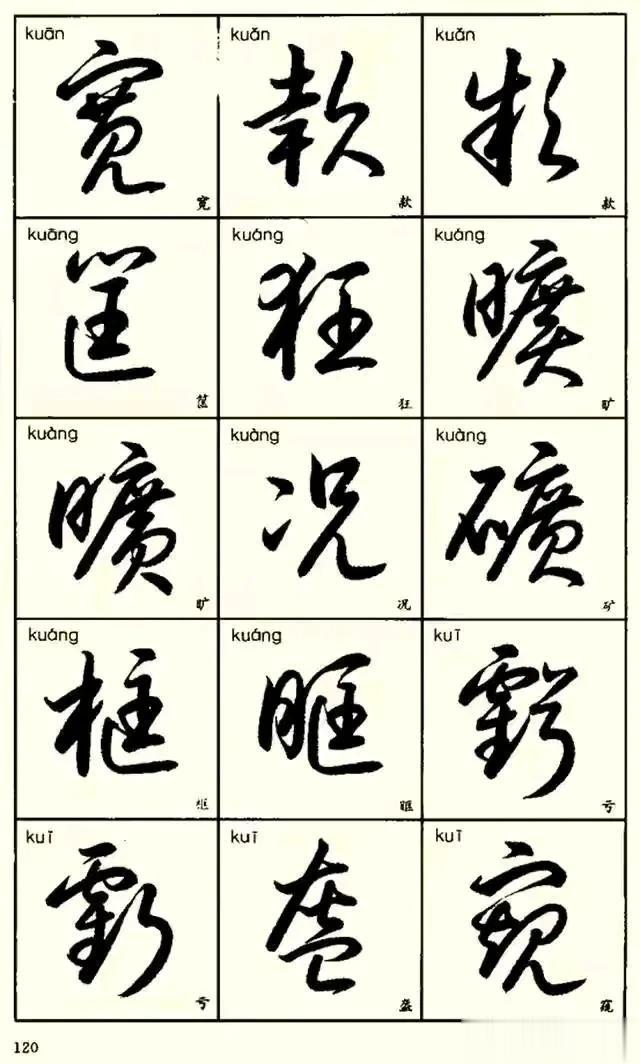 kuān kuǎn kuǎn
寬 款 款
宽 款 款
kuāng kuáng kuáng
筐 狂 曠
筐 狂 旷
kuàng kuàng kuàng
曠 况 礦
旷 况 矿
kuáng kuáng kuī
框 眶 虧
框 眶 亏
kuī kuī kuī
虧 盔 窺
亏 盔 窥
120